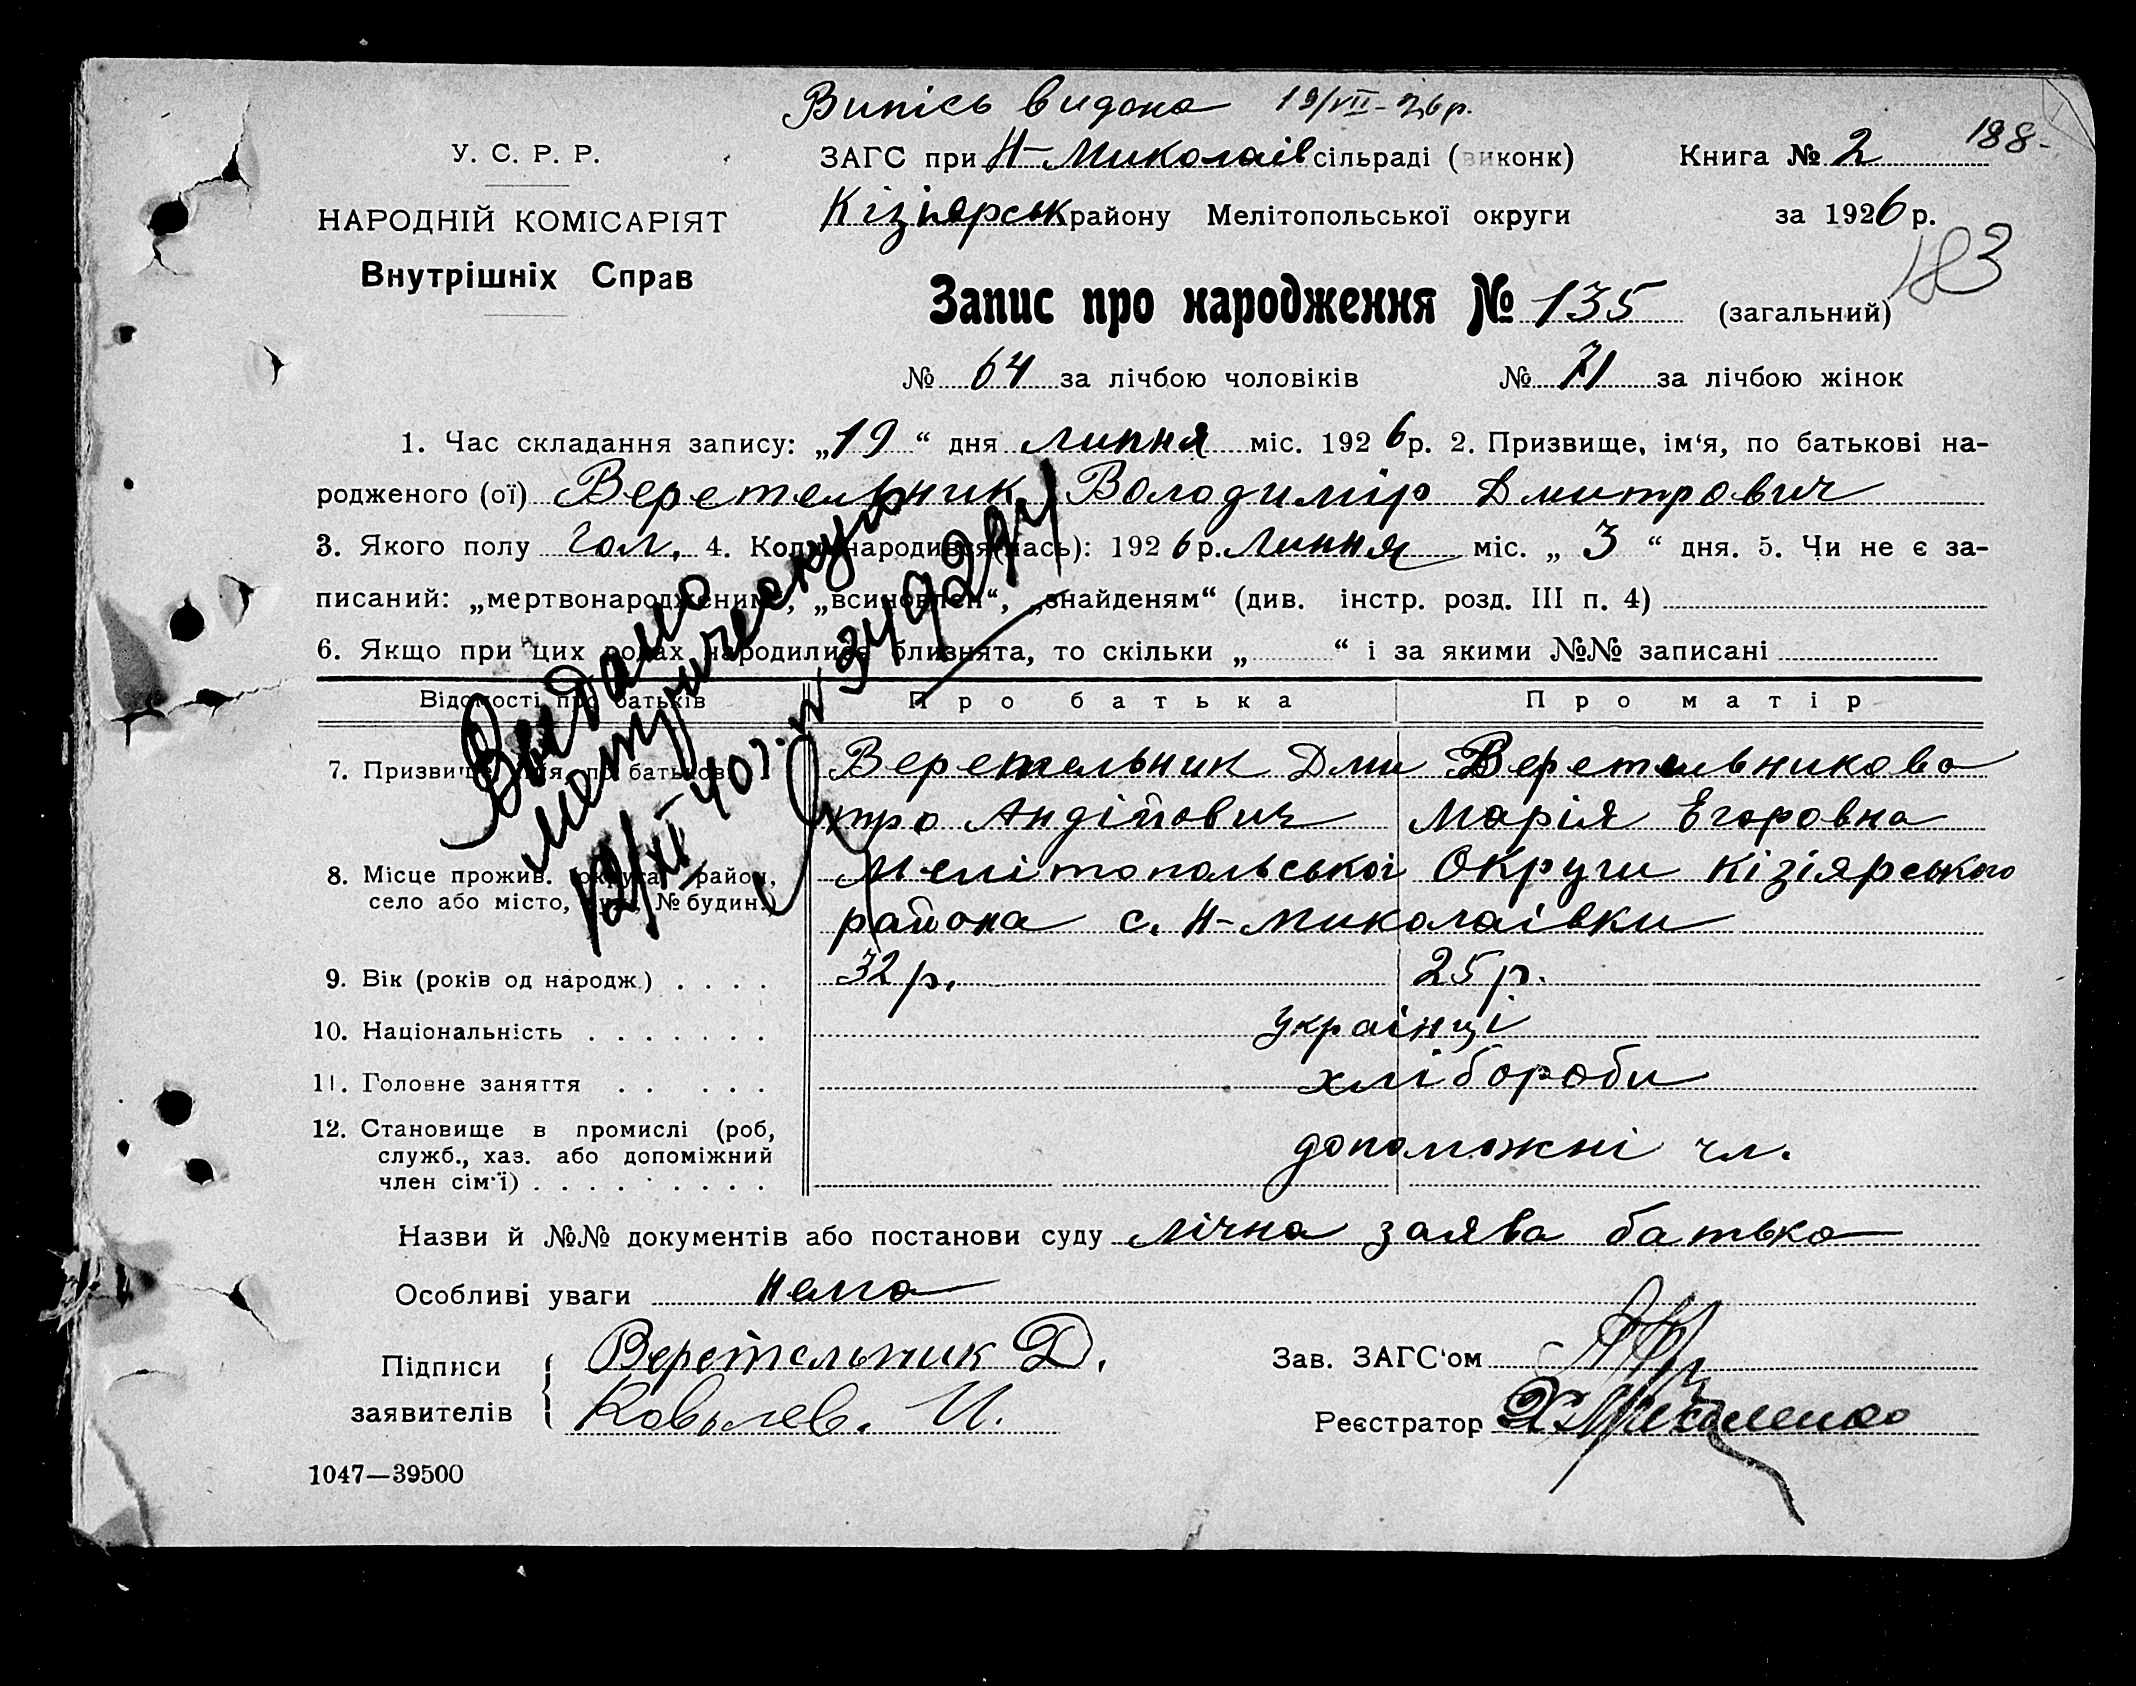 Випісь видана 19/VII-26р.
188-
У. С. Р. Р.
НАРОДНІЙ КОМІСАРІЯТ
Внутрішніх Справ
ЗАГС при Н-Миколаів сільраді (виконк)
Книга № 2
Кізіярськ району Мелітопольської округи
за 1926 р.
183
Запис про народження № 135 (загальний)
№ 64 за лічбою чоловіків № 71 за лічбою жінок
1. Час складання запису: „19“ дня липня міс. 1926 р. 2. Призвище, ім‘я, по батькові на-
родженого (ої) Веретельник Володимір Дмитрович
3. Якого полу чол. 4. Коли народився (лась): 1926 р. Липня міс. „3“ дня. 5. Чи не є за-
писаний: „мертвонародженим“, „всиновлен“, „знайденям“ (див. інстр. розд. III п. 4)
6. Якщо при цих родах народилися близнята, то скільки „ “ і за якими №№ записані
Выдано
метрическую
12/XII-40г. №
Відомості про батьків
Про батька
Про матір
7. Призвище, ім‘я, по батькові
Веретельник Дми
тро Андійович
Веретельникова
Марія Егоровна
8. Місце прожив. (округа, район,
село або місто, вул., № будин.)
Мелітопольськоі Округи Кізіярського
района с. Н-Миколаівки
9. Вік (років од народж.) . . . .
32 р.
25 р.
10. Національність . . . . . . .
Украінці
11. Головне заняття . . . . .
хлібороби
12. Становище в промислі (роб,
служб., хаз. або допоміжний
член сім‘ї) . . . . . . . . .
допоможні чл.
Назви й №№ документів або постанови суду лічна заява батька
Особливі уваги нема
Підписи
заявителів
Веретельник Д.
Ковылев. И.
Зав. ЗАГС‘ом
Реєстратор
1047—39500